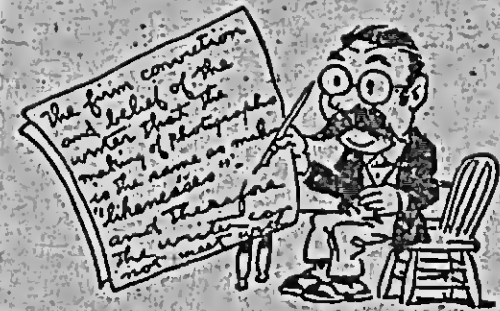 The firm conviction
and belief of the
writer that the
making of photographs
is the same as mak
"likenesses"
and therefore
the writer can
not must